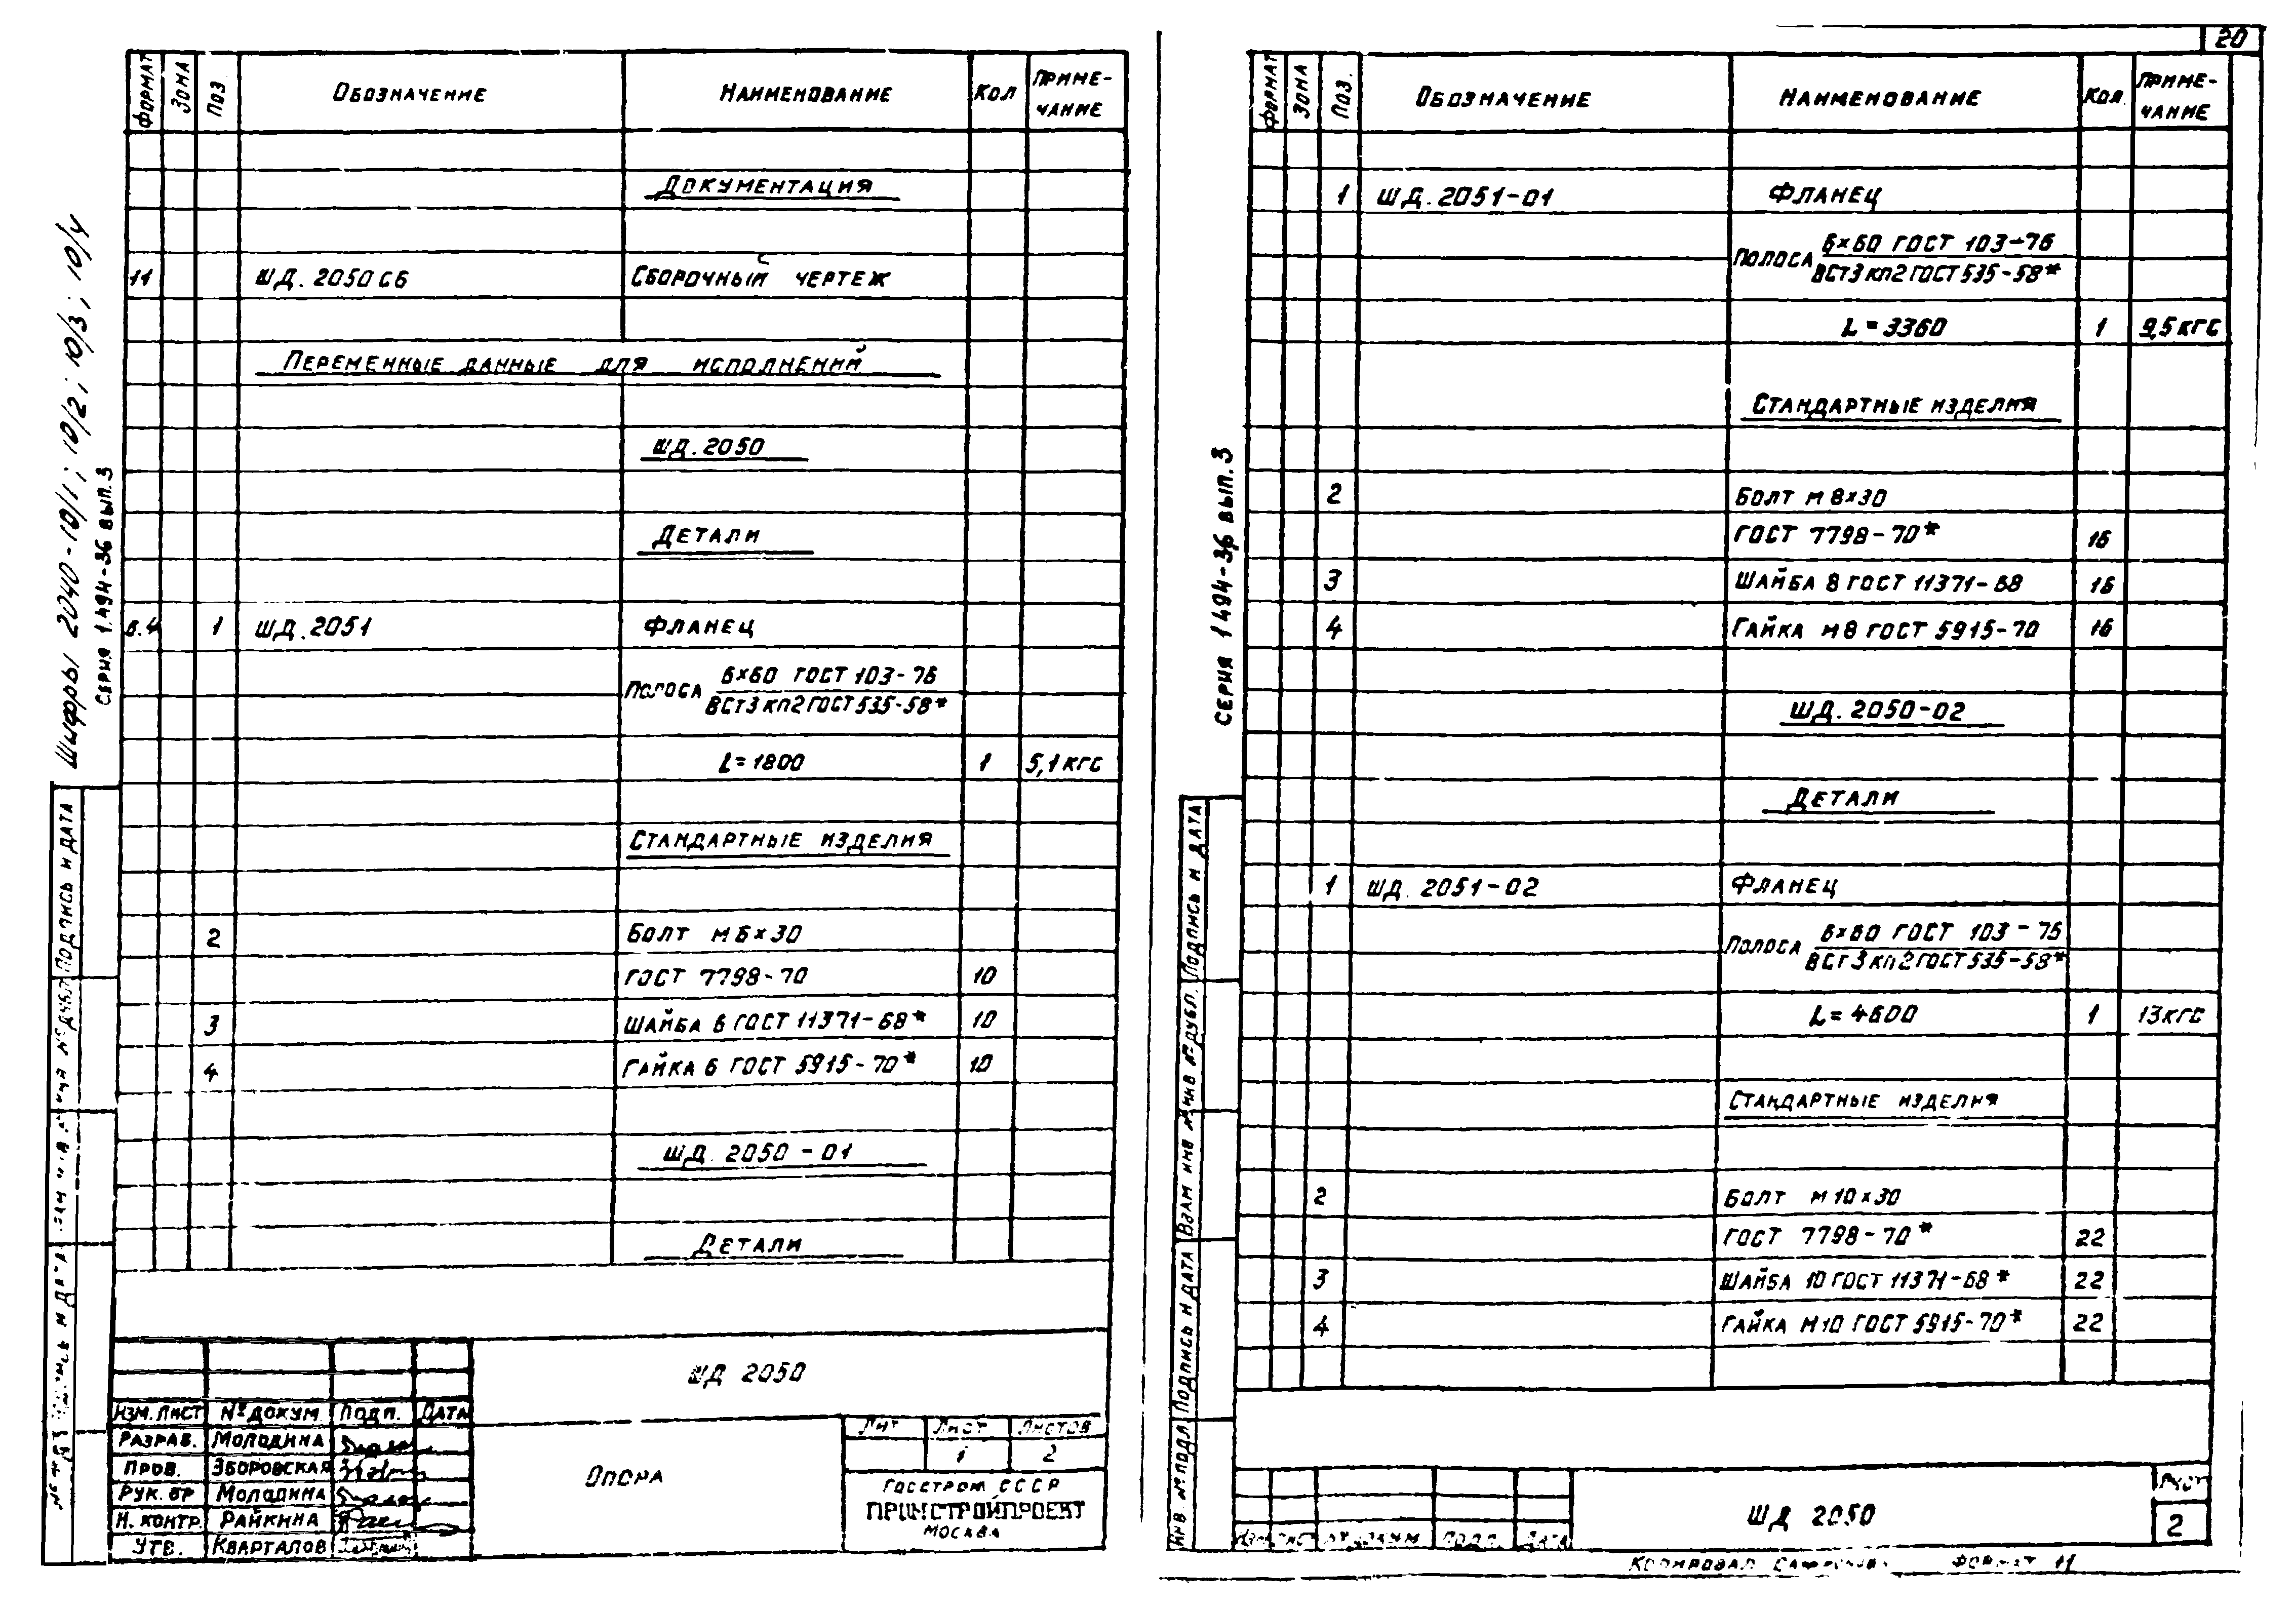 Шифры 2040-10/1; 10/2; 10/3; 10/4
СЕРИЯ 1.494-36 ВЫП.3
ФОРМАТ ЗОНА ПОЗ ОБОЗНАЧЕНИЕ НАИМЕНОВАНИЕ КОЛ ПРИМЕ-
ЧАНИЕ
ДОКУМЕНТАЦИЯ
11 ШД.2050СБ СБОРОЧНЫЙ ЧЕРТЕЖ
ПЕРЕМЕННЫЕ ДАННЫЕ ДЛЯ ИСПОЛНЕНИЙ
ШД.2050
ДЕТАЛИ
Б.Ч 1 ШД.2051 ФЛАНЕЦ
ПОЛОСА 6×60 ГОСТ 103-76
ВСТ3КП2ГОСТ535-58*
L=1800 1 5,1КГС
СТАНДАРТНЫЕ ИЗДЕЛИЯ
2 БОЛТ М6×30
ГОСТ 7798-70 10
3 ШАЙБА 6 ГОСТ 11371-68* 10
4 ГАЙКА 6 ГОСТ 5915-70* 10
ШД.2050-01
ДЕТАЛИ
ПОДПИСЬ И ДАТА
ШД 2050
ИЗМ. ЛИСТ №ДОКУМ ПОДП. ДАТА
РАЗРАБ. МОЛОДИНА
ПРОВ. ЗБОРОВСКАЯ
РУК. БР МОЛОДИНА
Н. КОНТР. РАЙКИНА
УТВ. КВАРТАЛОВ
ОПОРА
ЛИТ ЛИСТ ЛИСТОВ
1 2
ГОССТРОЙ СССР
ПРОМСТРОЙПРОЕКТ
МОСКВА
20
СЕРИЯ 1494-36 ВЫП.3
ФОРМАТ ЗОНА ПОЗ. ОБОЗНАЧЕНИЕ НАИМЕНОВАНИЕ КОЛ. ПРИМЕ-
ЧАНИЕ
1 ШД.2051-01 ФЛАНЕЦ
ПОЛОСА 6×60 ГОСТ 103-76
ВСТ3КП2ГОСТ535-58*
L=3360 1 9,5КГС
СТАНДАРТНЫЕ ИЗДЕЛИЯ
2 БОЛТ М8×30
ГОСТ 7798-70* 16
3 ШАЙБА 8 ГОСТ 11371-68 16
4 ГАЙКА М8 ГОСТ 5915-70 16
ШД.2050-02
ДЕТАЛИ
1 ШД.2051-02 ФЛАНЕЦ
ПОЛОСА 6×60 ГОСТ 103-76
ВСТ3КП2ГОСТ535-58*
L=4600 1 13КГС
СТАНДАРТНЫЕ ИЗДЕЛИЯ
2 БОЛТ М10×30
ГОСТ 7798-70* 22
3 ШАЙБА 10 ГОСТ 11371-68* 22
4 ГАЙКА М10 ГОСТ 5915-70* 22
ПОДПИСЬ И ДАТА
ИНВ №ДУБЛ.
ВЗАМ ИНВ №
ПОДПИСЬ И ДАТА
ИНВ. №ПОДЛ
ИЗМ ЛИСТ №ДОКУМ ПОДП. ДАТА
ШД 2050
ЛИСТ
2
КОПИРОВАЛ ФОРМАТ 11